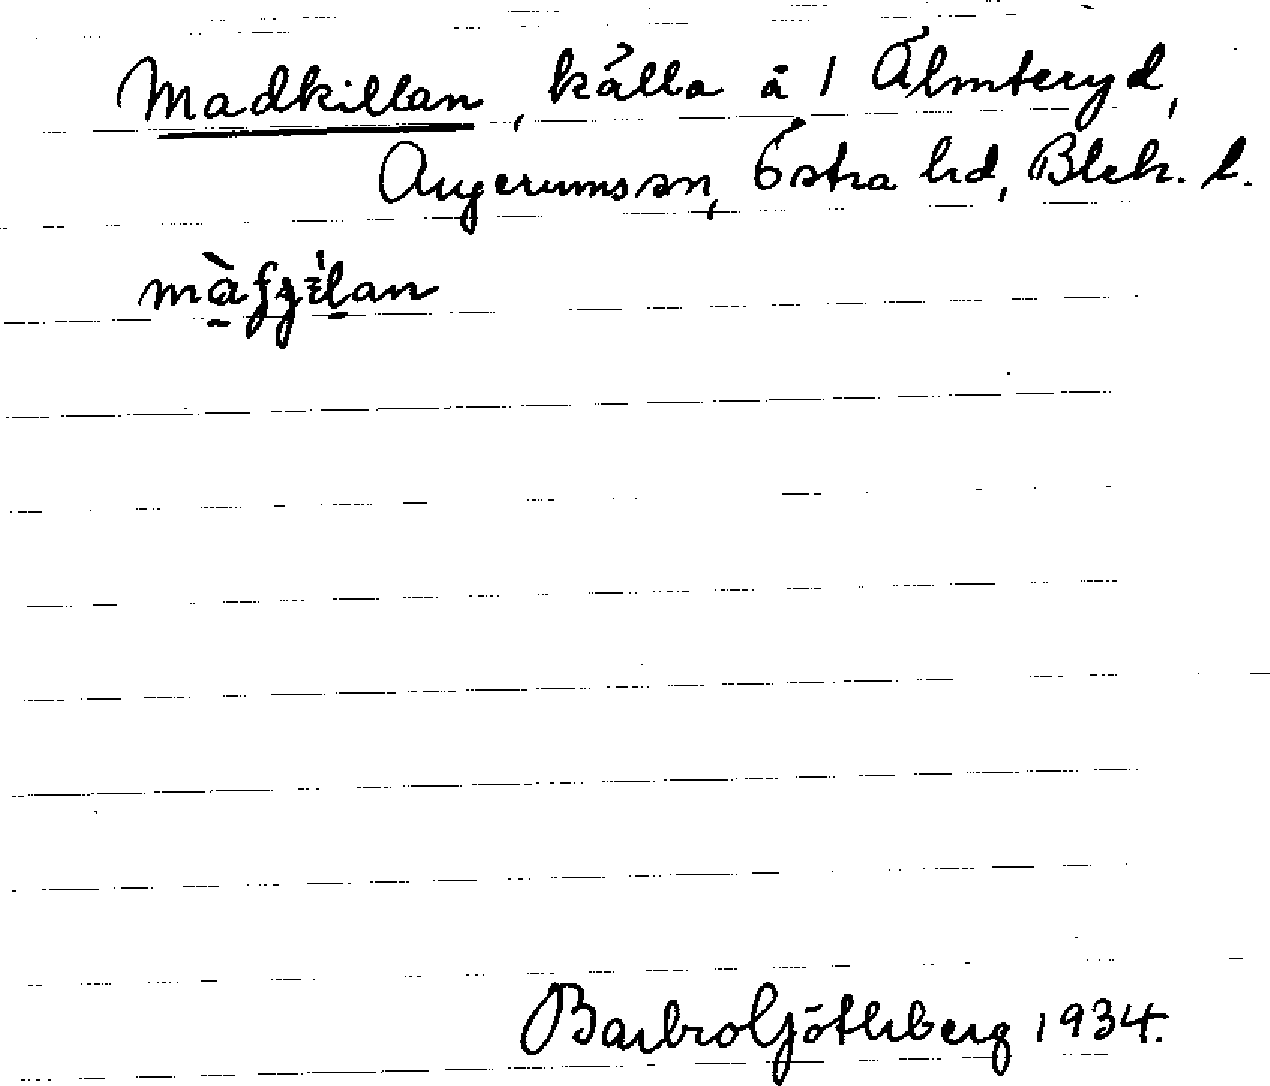 Madkillan, källa å 1 Älmteryd,
Augerums sn, Östra hd, Blek. l.
Barbro Götherberg 1934.